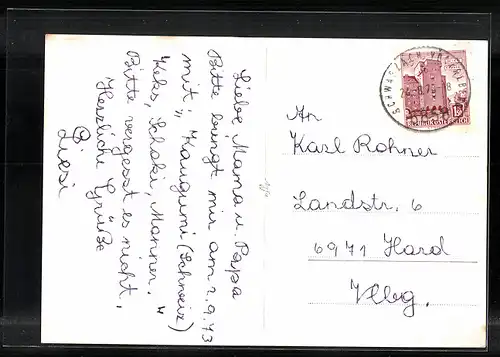 Liebe, Mama u. Papa
Bitte bringt mir am 2.9.73
mit: „Kaugumi (Schweiz)
Keks, Schoki, Manner."
Bitte vergesst es nicht.
Herzliche Grüße
Liesi
An
Karl Rohner
Landstr. 6
6971 Hard
Vlbg.
SCHWARZACH, VORARLBERG
REPUBLIK ÖSTERREICH